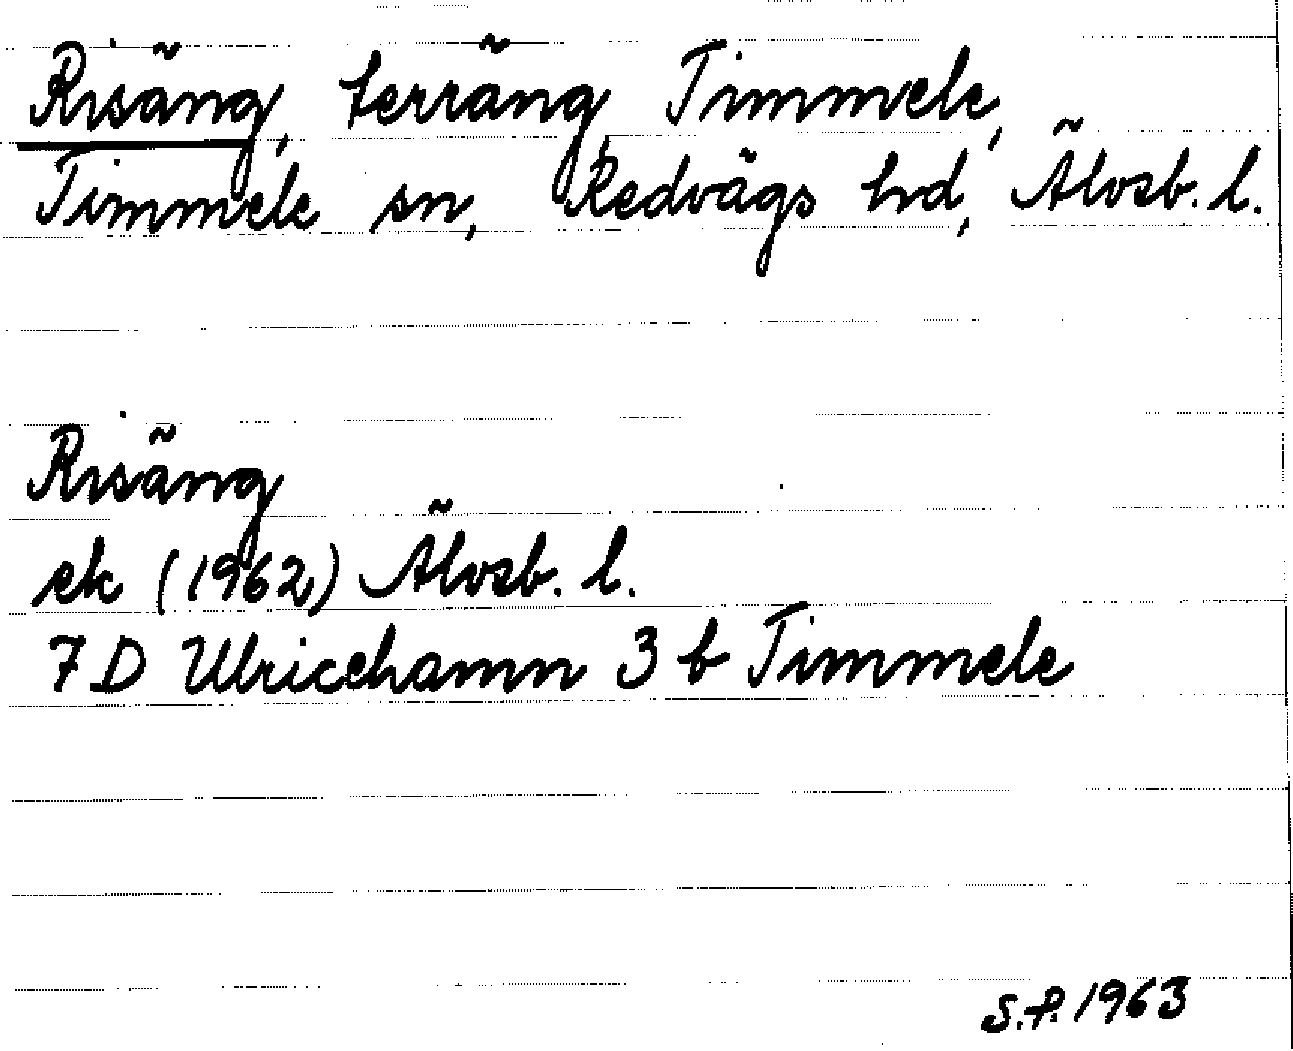 Risäng, terräng, Timmele,
Timmele sn, Redvägs hd, Älvsb. l.
Risäng
ek (1962) Älvsb. l.
7 D Ulricehamn 3 b Timmele
S.P. 1963